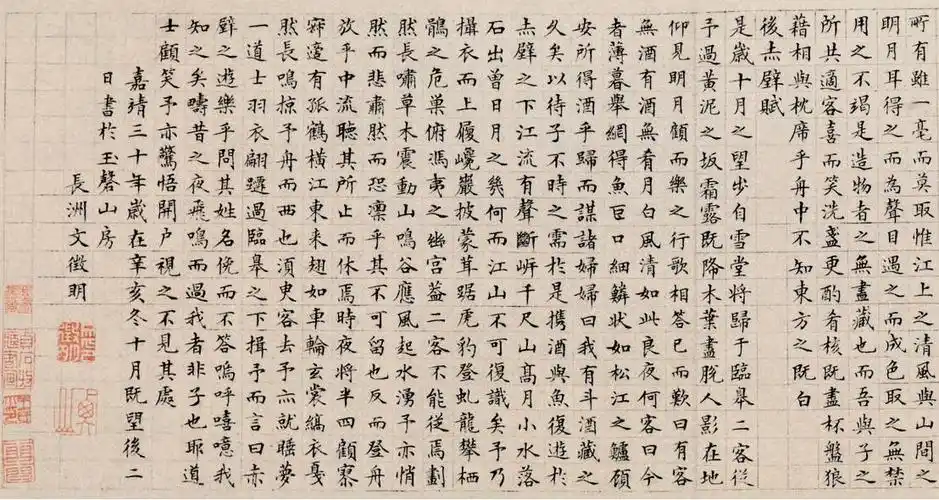 所有雖一毫而莫取惟江上之清風與山間之
明月耳得之而為聲目過之而成色取之無禁
用之不竭是造物者之無盡藏也而吾與子之
所共適客喜而笑洗盞更酌肴核既盡杯盤狼
藉相與枕席乎舟中不知東方之既白
後赤壁賦
是歲十月之望步自雪堂將歸于臨皋二客從
予過黃泥之坂霜露既降木葉盡脫人影在地
仰見明月顧而樂之行歌相答已而歎曰有客
無酒有酒無肴月白風清如此良夜何客曰今
者薄暮舉網得魚巨口細鱗狀如松江之鱸顧
安所得酒乎歸而謀諸婦婦曰我有斗酒藏之
久矣以待子不時之需於是攜酒與魚復遊於
赤壁之下江流有聲斷岸千尺山高月小水落
石出曾日月之幾何而江山不可復識矣予乃
攝衣而上履巉巖披蒙茸踞虎豹登虬龍攀栖
鶻之危巢俯馮夷之幽宮蓋二客不能從焉劃
然長嘯草木震動山鳴谷應風起水湧予亦悄
然而悲肅然而恐凜乎其不可留也反而登舟
放乎中流聽其所止而休焉時夜將半四顧寂
寥適有孤鶴橫江東来翅如車輪玄裳縞衣戛
然長鳴掠予舟而西也須臾客去予亦就睡夢
一道士羽衣翩躚過臨皋之下揖予而言曰赤
壁之遊樂乎問其姓名俛而不答嗚呼噫嘻我
知之矣疇昔之夜飛鳴而過我者非子也耶道
士顧笑予亦驚悟開户視之不見其處
嘉靖三十年歲在辛亥冬十月既望後二
日書於玉磬山房
長洲文徵明